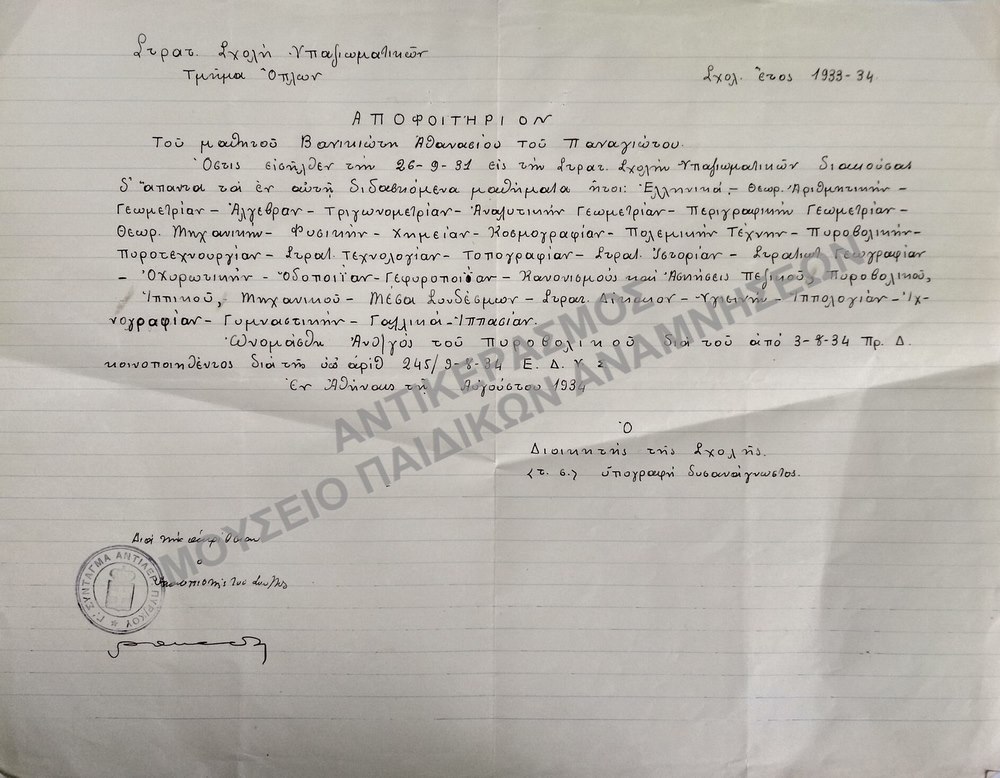 Στρατ. Σχολή Ὑπαξιωματικῶν
Τμῆμα Ὅπλων
Σχολ. ἔτος 1933-34
ΑΠΟΦΟΙΤΗΡΙΟΝ
Τοῦ μαθητοῦ Βανικιώτη Ἀθανασίου τοῦ Παναγιώτου.
Ὅστις εἰσῆλθεν τὴν 26-9-31 εἰς τὴν Στρατ. Σχολὴν Ὑπαξιωματικῶν διακούσας
δ' ἅπαντα τὰ ἐν αὐτῇ διδασκόμενα μαθήματα ἤτοι: Ἑλληνικά,- Θεωρ. Ἀριθμητικήν-
Γεωμετρίαν- Ἄλγεβραν- Τριγωνομετρίαν- Ἀναλυτικήν Γεωμετρίαν- Περιγραφικήν Γεωμετρίαν-
Θεωρ. Μηχανικήν- Φυσικήν- Χημείαν- Κοσμογραφίαν- Πολεμικήν Τέχνην- Πυροβολικήν-
Πυροτεχνουργίαν- Στρατ. Τεχνολογίαν- Τοπογραφίαν- Στρατ. Ἱστορίαν- Στρατιωτ. Γεωγραφίαν
- Ὀχυρωτικήν- Ὁδοποιΐαν- Γεφυροποιΐαν- Κανονισμούς καί Ἀσκήσεις Πεζικοῦ, Πυροβολικοῦ,
Ἱππικοῦ, Μηχανικοῦ- Μέσα Συνδέσμων- Στρατ. Δίκαιον- Ὑγιεινήν- Ἱππολογίαν- Ἰχ-
νογραφίαν- Γυμναστικήν- Γαλλικά- Ἱππασίαν.
Ὠνομάσθη Ἀνθ/γός τοῦ Πυροβολικοῦ διά τοῦ ἀπό 3-8-34 Πρ. Δ.
κοινοποιηθέντος διά τῆς ὑπ' ἀριθ 245/9-8-34 Ε. Δ. Υ. Σ.
Ἐν Ἀθήναις τῇ Αὐγούστου 1934
Ὁ
Διοικητής τῆς Σχολῆς.
(τ. σ.) ὑπογραφή δυσανάγνωστος.
ΑΝΤΙΚΕΡΑΣΜΟΣ
ΜΟΥΣΕΙΟ ΠΑΙΔΙΚΩΝ ΑΝΑΜΝΗΣΕΩΝ
Διά τήν
ὁ
τοῦ
Γ' ΣΥΝΤΑΓΜΑ ΑΝΤΙΑΕΡ. ΠΥΡ/ΚΟΥ